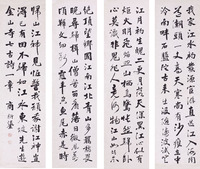 我家江水初發源宦游直送江入海聞
道潮頭一丈高天寒尚有沙痕在中
泠南畔石盤陀古來出沒隨濤波試登
江月初生魄二更月落天深黑江心似有
炬火明飛焰照山棲鳥驚悵然歸臥
心莫識非鬼非人竟何物江山如此不
絕頂望鄉國江南江北青山多羈愁
畏晚尋歸楫山僧苦留看落日微風
萬頃靴文細斷霞半空魚尾赤是時
歸山江神見怪驚我頑我謝江神豈
得已有田不歸如江水東坡先生遊
金山寺七古詩一章 商衍鎏